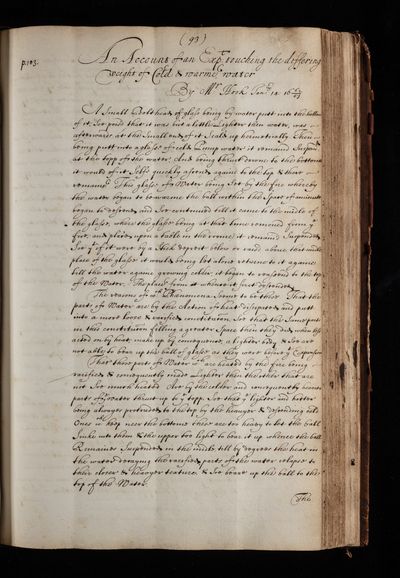 (93)
p.103.
An Account of an Exp.t touching the differing
weight of Cold & warme water
By Mr Hook
A Small Bolthead of glass being by water putt into the
of it Soe poised that it was but a little Lighter then water, was
afterwards at the Small end of it Seald up hermetically. Then
being putt into a glass of cold Pump water it remaind Suspend
at the topp of the water. And being thrust downe to the bottome
it would of it Selfe quickly ascend againe to the top & there
remaine. This glass of Water being Set by the fire whereby
the water began to be warme the ball within the Space of a minute
began to descend and Soe continued till it came to the midle of
the glasse, where the glasse being at that time removed from ye
fire and placed upon a table in the roome it remaind Suspended
Soe yt if it were by a Stick deprest below or raisd above that midle
place of the glasse it would being let alone returne to it againe
till the water againe growing colder it began to reascend to the top
of the Water. The place from whence it first descended.
The reasons of wch Phænomena Seeme to be these. That the
parts of Water are by the Action of heat dissipated and putt
into a more loose & rarified constitution Soe that the Same parts
in this constitution filling a greater Space then they did when less
acted on by heat make up by consequence a lighter body & Soe are
not able to bear up the ball of glasse as they were before ye Expansion
That those parts of Water wch are heated by the fire being
rarified & consequently made Lighter then the other that are
not Soe much heated Are by the colder and consequently heavier
parts of ye water thrust up to ye topp. Soe that ye lighter and hotter
being alwayes protruded to the top by the heavyer & descending cold
Ones keep near the bottome these are too heavy to let the ball
Sinke into them & the upper too light to bear it up whence the ball
Remaines Suspended in the midle till by degrees the heat in
the water decaying the rarified parts of the water relapse to
their closer & heavyer texture & Soe beare up the ball to the
top of the Water.
The